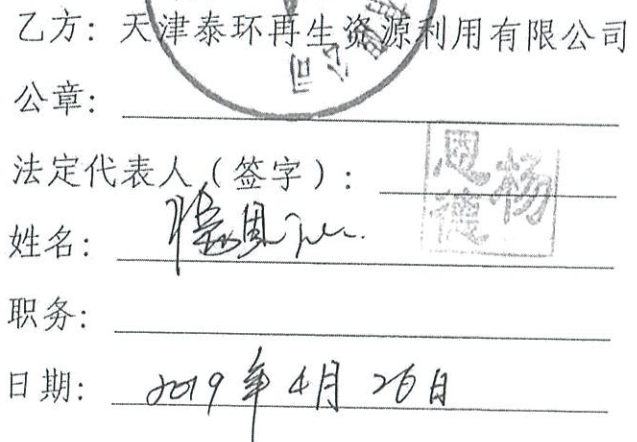 乙方：天津泰环再生资源利用有限公司
公章：
法定代表人（签字）：
杨恩德
姓名：
职务：
日期： 2019年4月26日